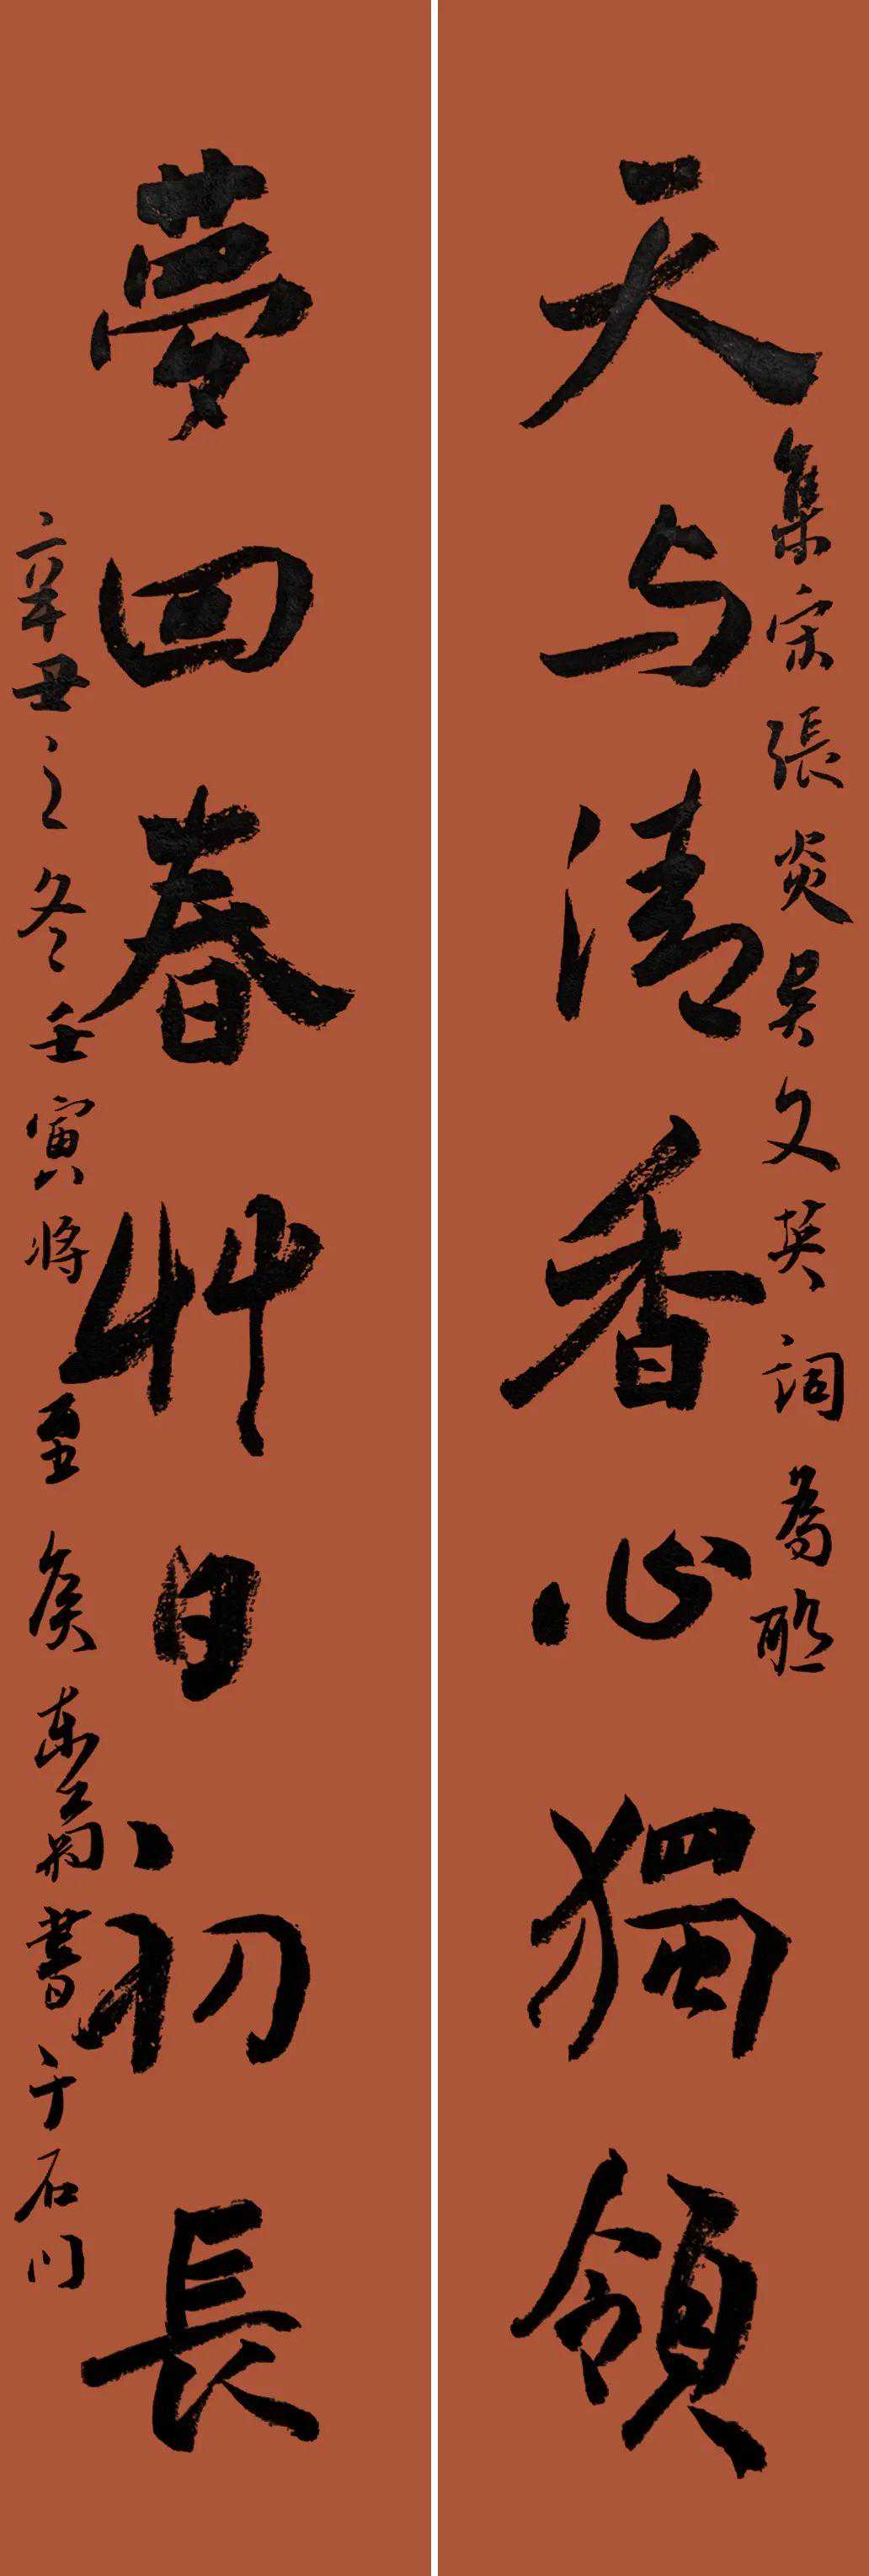 集宋張炎吳文英詞為聯
天与清香心獨領
夢回春艸日初長
辛丑之冬壬寅将至侯東菊書于石门